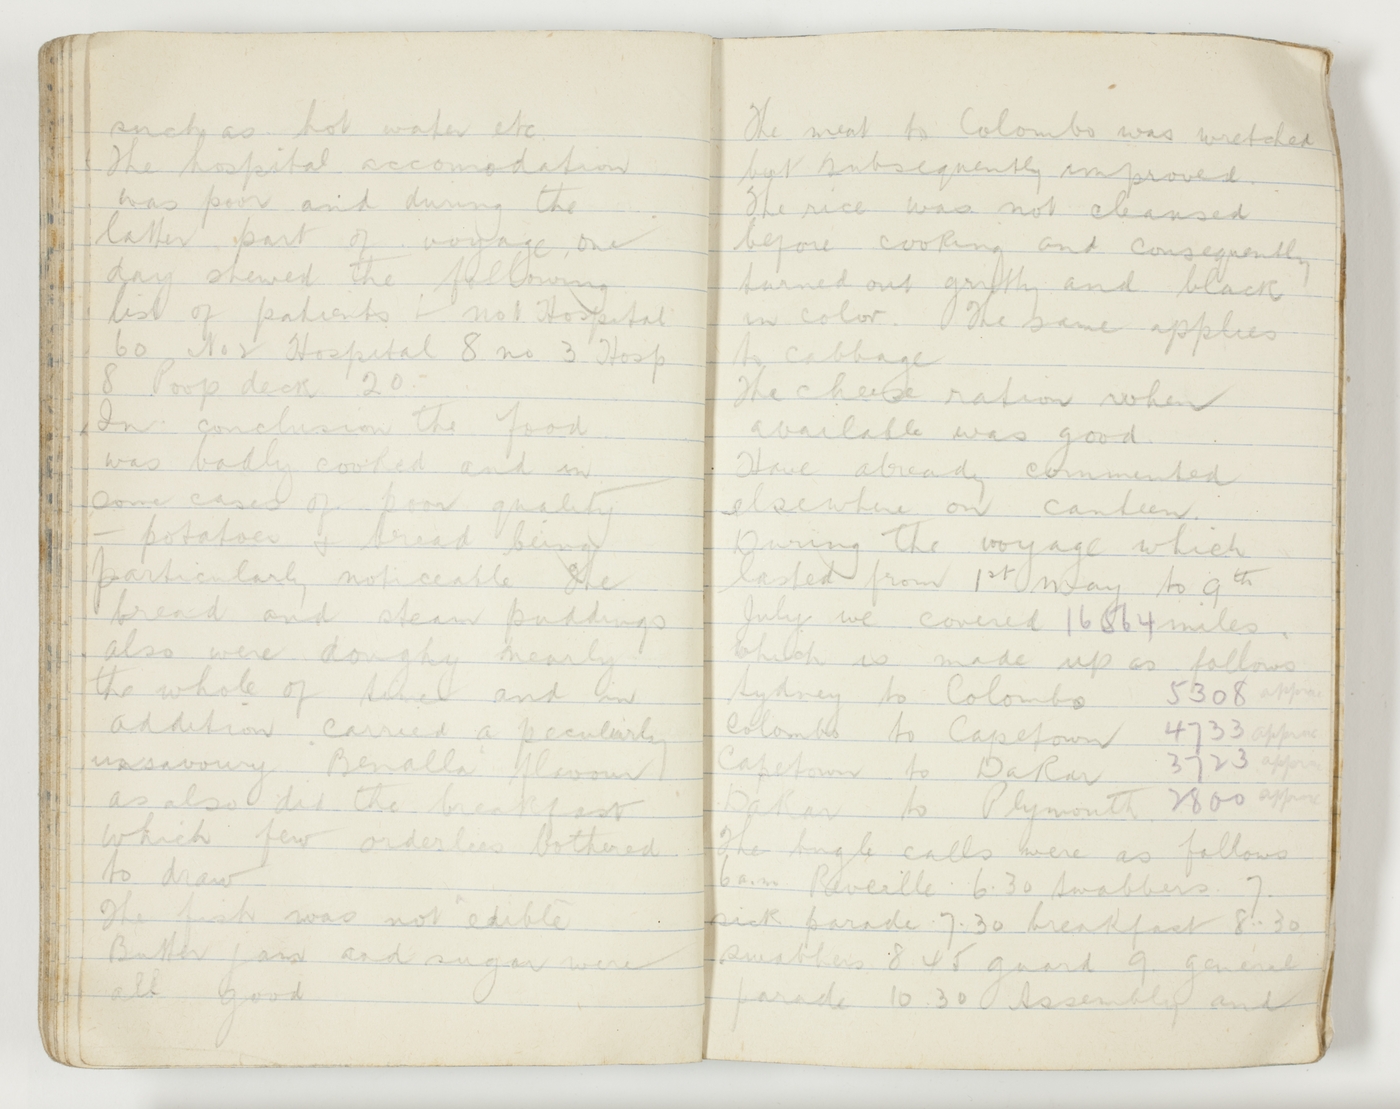 such as hot water etc.
The hospital accomodation
was poor and during the
latter part of voyage one
day shewed the following
list of patients :- no 1 Hospital
60 No 2 Hospital 8 no 3 Hosp
8 Poop deck 20.
In conclusion the food
was badly cooked and in
some cases of poor quality
- potatoes & bread being
particularly noticeable The
bread and steam puddings
also were doughy nearly
the whole of time and in
addition carried a peculiarly
unsavoury "Benalla" flavour
as also did the breakfast
which few orderlies bothered
to draw
The fish was not "edible"
Butter jam and sugar were
all good
The meat to Colombo was wretched
but subsequently improved.
The rice was not cleansed
before cooking and consequently
turned out gritty and black
in color. The same applies
to cabbage
The cheese ration when
available was good.
Have already commented
elsewhere on canteen.
During the voyage which
lasted from 1st May to 9th
July we covered 16564 miles.
Which is made up as follows
Sydney to Colombo 5308 approx
Colombo to Capetown 4733 approx
Capetown to DaKar 3723 approx
DaKar to Plymouth 2800 approx
The bugle calls were as follows
6 a.m. Reveille 6.30 swabbers 7.
sick parade 7.30 breakfast 8.30
swabbers 8.45 guard 9. general
parade 10.30 Assembly and